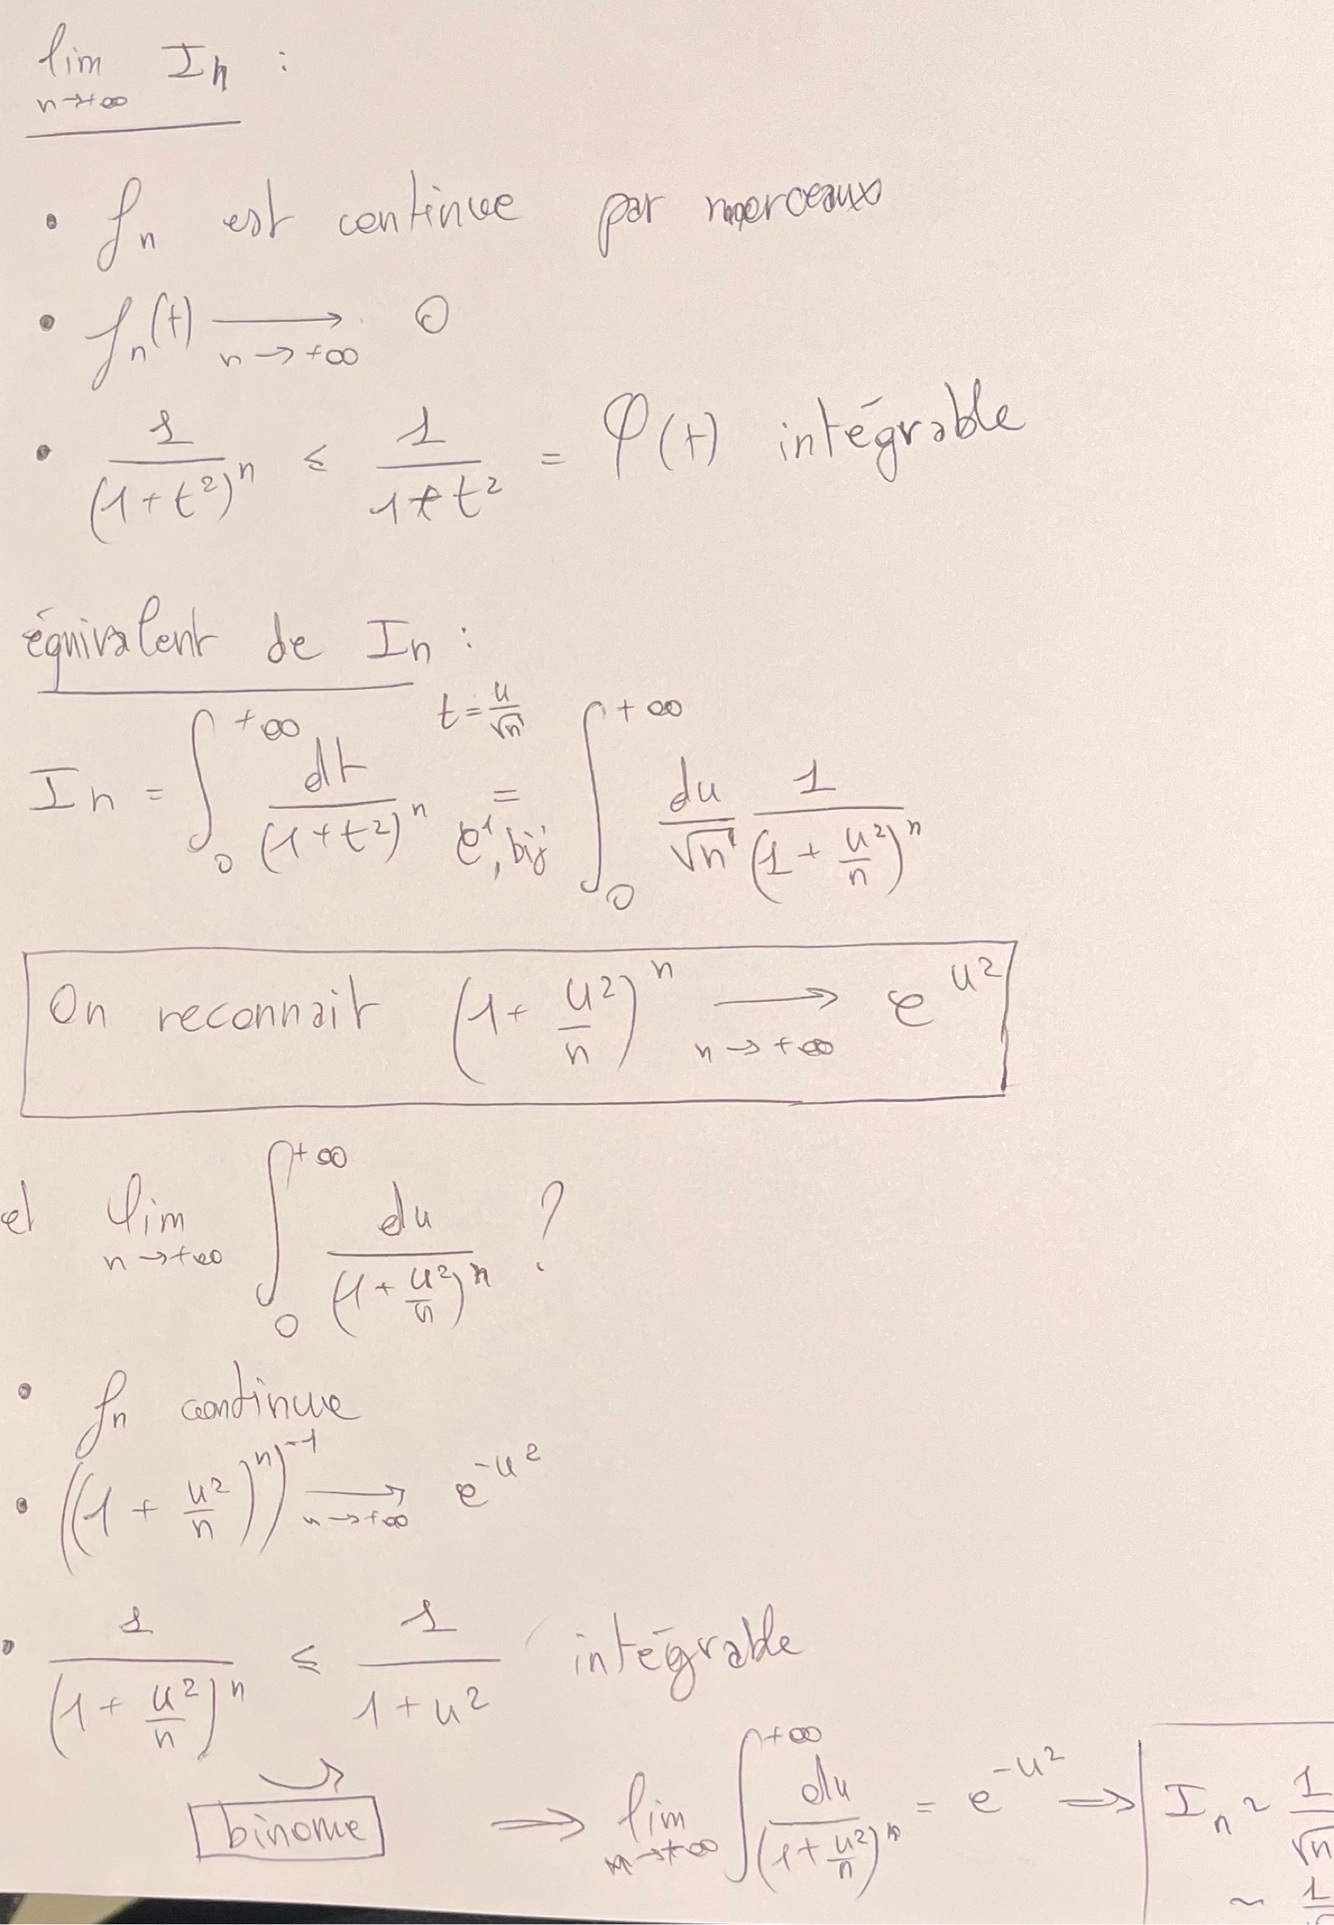 lim I_n :
n→+∞
• f_n est continue par morceaux
• f_n(t) ⟶ 0
n→+∞
• 1/(1+t²)^n ≤ 1/(1+t²) = φ(t) intégrable
équivalent de I_n :
I_n = ∫_0^{+∞} dt/(1+t²)^n = ∫_0^{+∞} du/√n 1/(1+u²/n)^n
t = u/√n
C¹, bij
On reconnait (1+u²/n)^n ⟶ e^{u²}
n→+∞
et lim ∫_0^{+∞} du/(1+u²/n)^n ?
n→+∞
• f_n continue
• ((1+u²/n)^n)^{-1} ⟶ e^{-u²}
n→+∞
• 1/(1+u²/n)^n ≤ 1/(1+u²) intégrable
binome ⟹ lim ∫^{+∞} du/(1+u²/n)^n = e^{-u²} ⟹ I_n ~ 1/√n
n→+∞
~ 1